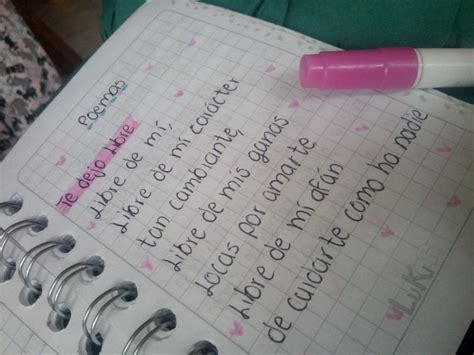 Poemas
Te dejo libre
Libre de mí,
Libre de mi carácter
tan cambiante,
Libre de mis ganas
Locas por amarte
Libre de mi afán
de cuidarte como ha nadie